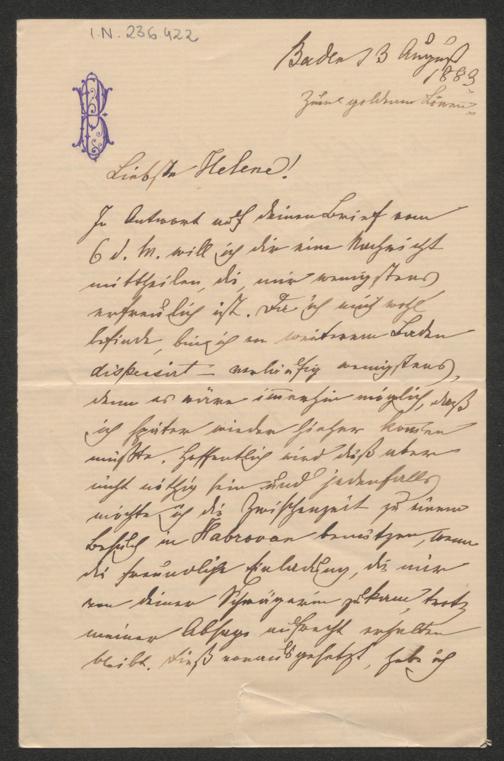 I.N. 236422
Baden 13 August
1883
Zum goldenen Löwen
Liebste Helene!
In Antwort auf deinen Brief vom
6 d. M. will ich dir eine Nachricht
mittheilen, die mir wenigstens
erfreulich ist. Da ich mich wohl
befinde, bin ich von weiterem Baden
dispensirt – vorläufig wenigstens,
denn es wäre immerhin möglich, daß
ich später wieder hieher kommen
müßte. Hoffentlich wird dieß aber
nicht nöthig sein und jedenfalls
möchte ich die Zwischenzeit zu einem
Besuch in Habrovan benützen, wenn
die freundliche Einladung, die mir
von deiner Schwägerin zukam, trotz
meiner Absage aufrecht erhalten
bleibt. Dieß vorausgesetzt, habe ich